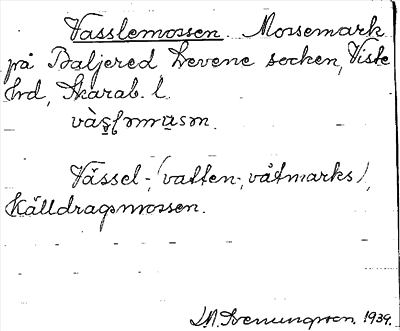 Vasslemossen. Mossemark
på Baljered Levene socken, Viste
hrd, Skarab. l.
Vässel- (vatten-, våtmarks),
Källdragsmossen.
1939.